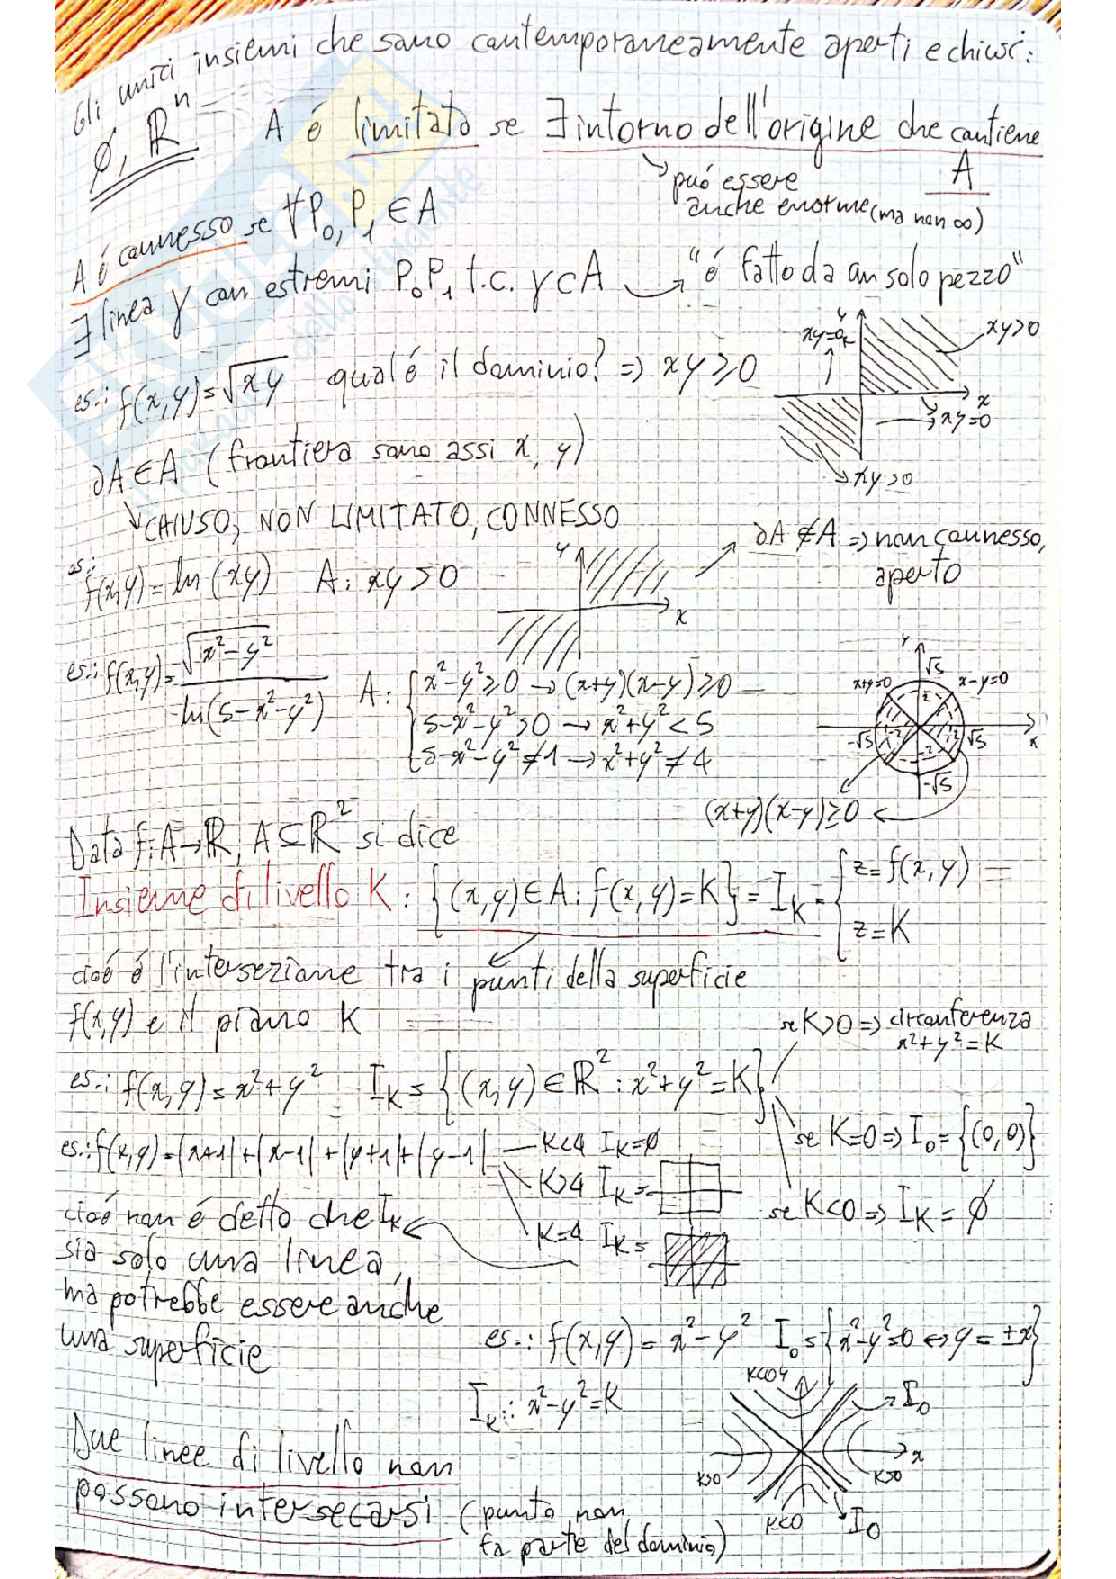 Gli unici insiemi che sono contemporaneamente aperti e chiusi:
∅, ℝⁿ
A é limitato se ∃ intorno dell'origine che contiene A
↘ può essere anche enorme (ma non ∞)
A é connesso se ∀P₀, P₁ ∈ A
∃ linea γ con estremi P₀P₁ t.c. γ⊂A → "é fatto da un solo pezzo"
es.: f(x,y)=√xy qual é il dominio? ⇒ xy≥0
y
xy=0
xy>0
x
xy=0
xy>0
∂A∈A (frontiera sono assi x, y)
↘ CHIUSO, NON LIMITATO, CONNESSO
es: f(x,y)=ln(xy) A: xy>0
y
x
∂A∉A ⇒ non connesso, aperto
es.: f(x,y)=√(x²-y²) / ln(5-x²-y²) A: { x²-y²≥0 → (x+y)(x-y)≥0
5-x²-y²>0 → x²+y²<5
5-x²-y²≠1 → x²+y²≠4
y
√5
x+y=0
x-y=0
2
-√5
-2
2
√5
x
-2
-√5
(x+y)(x-y)≥0
Data f:A→ℝ, A⊆ℝ² si dice
Insieme di livello K: {(x,y)∈A: f(x,y)=K} = I_K = { z=f(x,y)
z=K
cioé é l'intersezione tra i punti della superficie
f(x,y) e il piano K
se K>0 ⇒ circonferenza
x²+y²=K
es.: f(x,y)=x²+y² I_K={(x,y)∈ℝ²: x²+y²=K}
se K=0 ⇒ I₀={(0,0)}
se K<0 ⇒ I_K=∅
es.: f(x,y)=|x+1|+|x-1|+|y+1|+|y-1| — K<4 I_K=∅
K>4 I_K=
K=4 I_K=
cioé non é detto che I_K
sia solo una linea,
ma potrebbe essere anche
una superficie
es.: f(x,y)=x²-y² I₀={x²-y²=0 ⇔ y=±x}
I_K: x²-y²=K
K<0 y
I₀
x
K>0
K>0
K<0
I₀
Due linee di livello non
possono intersecarsi (punto non
fa parte del dominio)